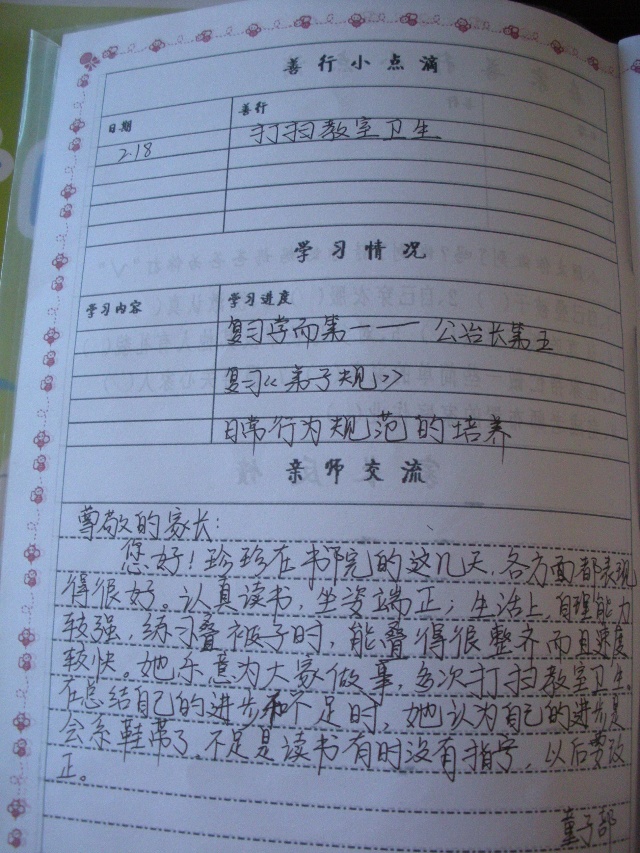 善行小点滴
日期 善行
2.18 打扫教室卫生
学习情况
学习内容 学习进度
复习学而第一——公冶长第五
复习《弟子规》
日常行为规范的培养
亲师交流
尊敬的家长:
您好!珍珍在书院的这几天,各方面都表现
得很好。认真读书,坐姿端正;生活上自理能力
较强,练习叠被子时,能叠得很整齐而且速度
较快。她乐意为大家做事,多次打扫教室卫生。
在总结自己的进步和不足时,她认为自己的进步是
会系鞋带了。不足是读书有时没有指字,以后要改
正。
童子部